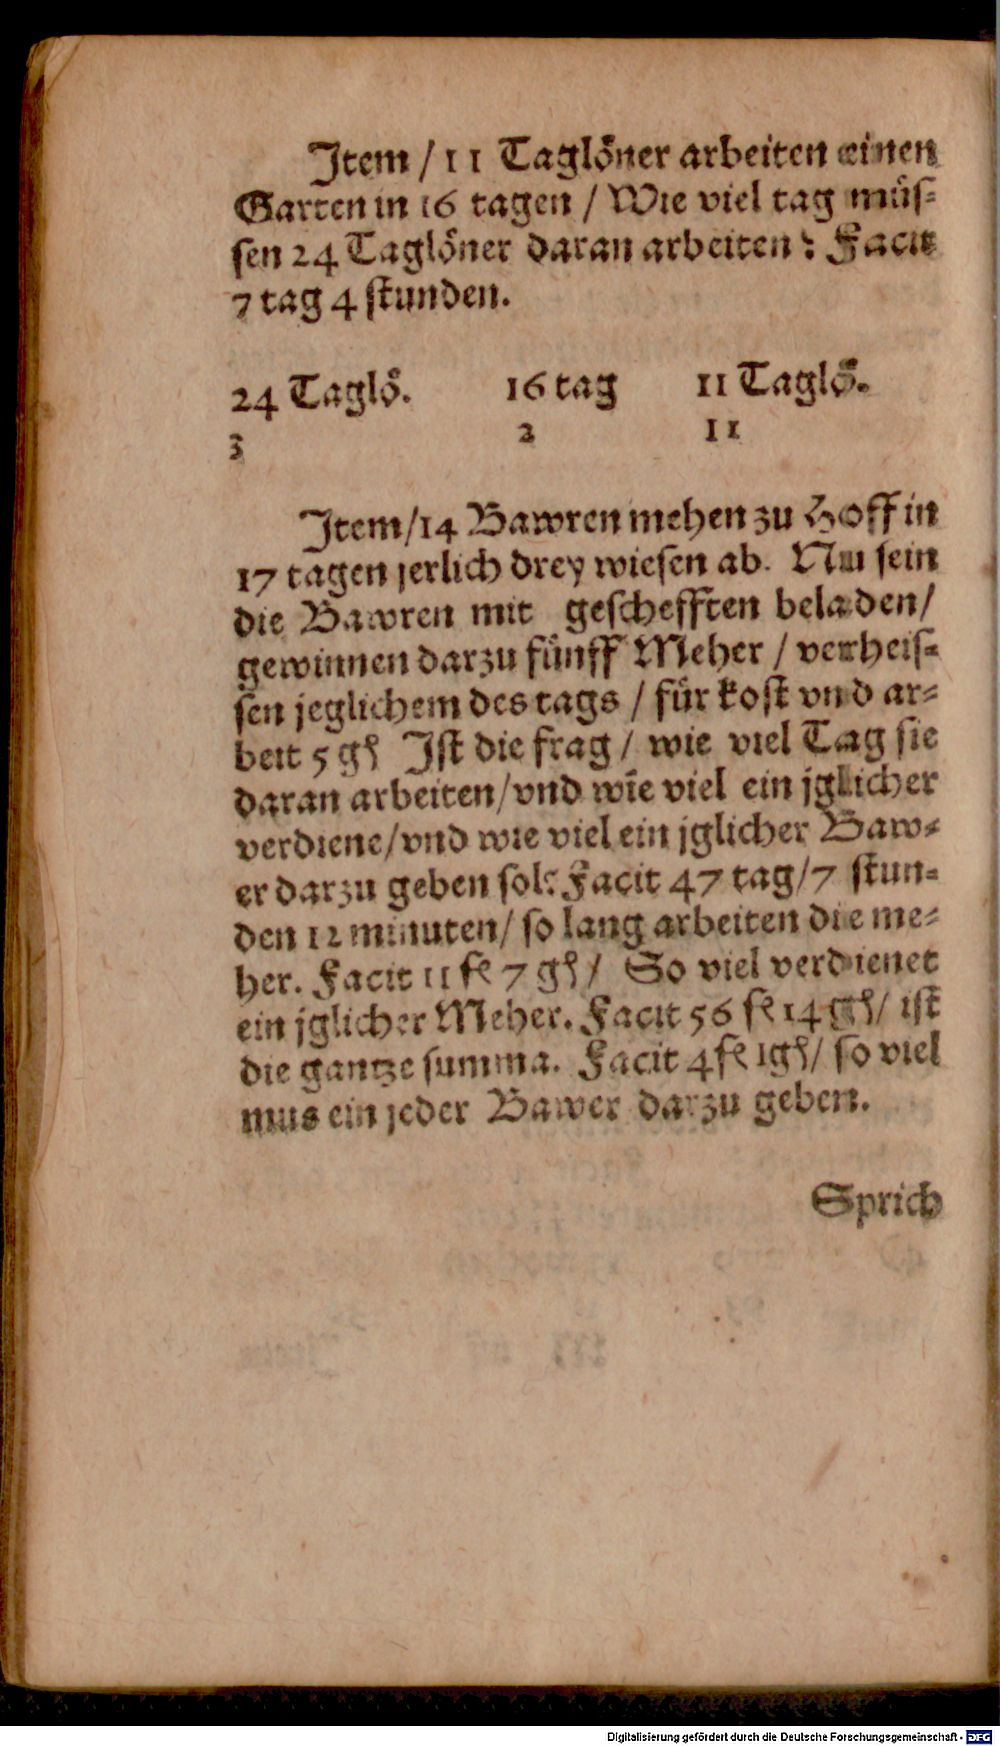 Item / 11 Taglöner arbeiten einen
Garten in 16 tagen / Wie viel tag müs-
sen 24 Taglöner daran arbeiten? Facit
7 tag 4 stunden.
24 Taglö. 16 tag 11 Taglö.
3 2 11
Item/14 Bawren mehen zu Hoff in
17 tagen jerlich drey wiesen ab. Nu sein
die Bawren mit geschefften beladen/
gewinnen darzu fünff Meher / verheis-
sen jeglichem des tags / für kost vnd ar-
beit 5 gſ Ist die frag / wie viel Tag sie
daran arbeiten/vnd wie viel ein jglicher
verdiene/vnd wie viel ein jglicher Baw-
er darzu geben sol: Facit 47 tag/7 stun-
den 12 minuten/ so lang arbeiten die me-
her. Facit 11 fl 7 gſ/ So viel verdienet
ein jglicher Meher. Facit 56 fl 14 gſ/ ist
die gantze summa. Facit 4 fl 1 gſ/ so viel
mus ein jeder Bawer darzu geben.
Sprich
Digitalisierung gefördert durch die Deutsche Forschungsgemeinschaft - DFG